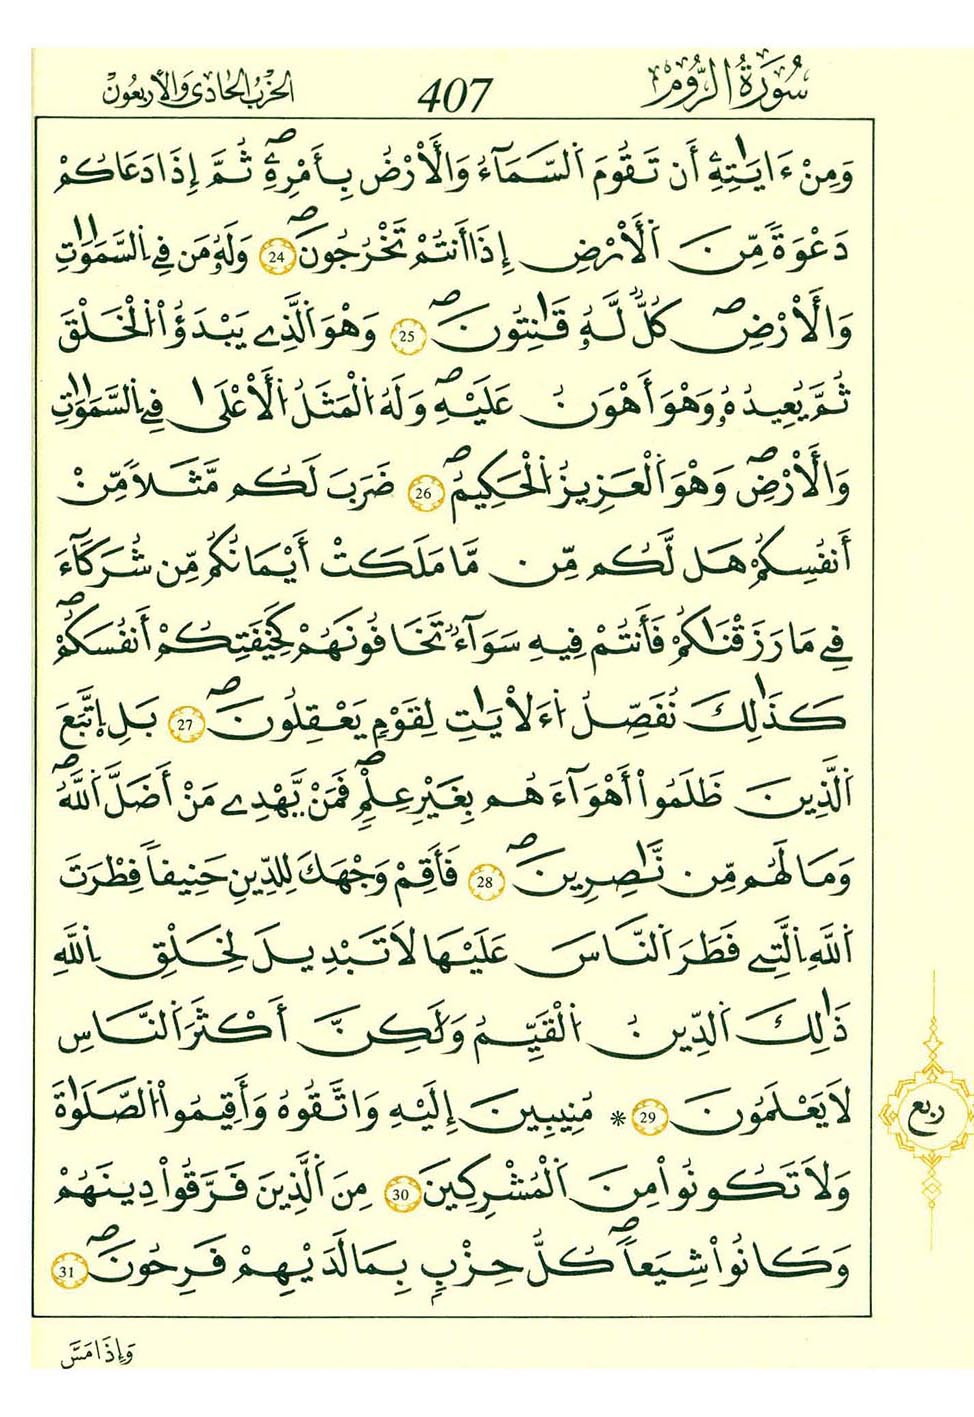 سُورَةُ الرُّومِ 407 الحِزْبُ الحَادِي وَالأَرْبَعُونْ
وَمِنْ ءَايَٰتِهِۦٓ أَن تَقُومَ اَ۬لسَّمَآءُ وَالَارْضُ بِأَمْرِهِۦۖ ثُمَّ إِذَا دَعَاكُمْ
دَعْوَةٗ مِّنَ اَ۬لَارْضِ إِذَآ أَنتُمْ تَخْرُجُونَۖ 24 وَلَهُۥ مَن فِے اِ۬لسَّمَٰوَٰتِ
وَالَارْضِۖ كُلّٞ لَّهُۥ قَٰنِتُونَۖ 25 وَهُوَ اَ۬لذِے يَبْدَؤُاْ اُ۬لْخَلْقَ
ثُمَّ يُعِيدُهُۥ وَهُوَ أَهْوَنُ عَلَيْهِۖ وَلَهُ اُ۬لْمَثَلُ اُ۬لَاعْلَىٰ فِے اِ۬لسَّمَٰوَٰتِ
وَالَارْضِۖ وَهُوَ اَ۬لْعَزِيزُ اُ۬لْحَكِيمُۖ 26 ضَرَبَ لَكُم مَّثَلاٗ مِّنَ
أَنفُسِكُمْ هَل لَّكُم مِّن مَّا مَلَكَتْ أَيْمَٰنُكُم مِّن شُرَكَآءَ
فِے مَا رَزَقْنَٰكُمْ فَأَنتُمْ فِيهِ سَوَآءٞ تَخَافُونَهُمْ كَخِيفَتِكُمْ أَنفُسَكُمْۖ
كَذَٰلِكَ نُفَصِّلُ اُ۬لَايَٰتِ لِقَوْمٖ يَعْقِلُونَۖ 27 بَلِ اِ۪تَّبَعَ
اَ۬لذِينَ ظَلَمُوٓاْ أَهْوَآءَهُم بِغَيْرِ عِلْمٖۖ فَمَنْ يَّهْدِے مَنْ أَضَلَّ اَ۬للَّهُۖ
وَمَا لَهُم مِّن نَّٰصِرِينَۖ 28 فَأَقِمْ وَجْهَكَ لِلدِّينِ حَنِيفاٗ فِطْرَتَ
اَ۬للَّهِ اِ۬لتِے فَطَرَ اَ۬لنَّاسَ عَلَيْهَا لَا تَبْدِيلَ لِخَلْقِ اِ۬للَّهِ
ذَٰلِكَ اَ۬لدِّينُ اُ۬لْقَيِّمُ وَلَٰكِنَّ أَكْثَرَ اَ۬لنَّاسِ
لَا يَعْلَمُونَ 29 * مُنِيبِينَ إِلَيْهِ وَاتَّقُوهُ وَأَقِيمُواْ اُ۬لصَّلَوٰةَ
وَلَا تَكُونُواْ مِنَ اَ۬لْمُشْرِكِينَ 30 مِنَ اَ۬لذِينَ فَرَّقُواْ دِينَهُمْ
وَكَانُواْ شِيَعاٗۖ كُلُّ حِزْبِۢ بِمَا لَدَيْهِمْ فَرِحُونَۖ 31
ربع
وَإِذَا مَسَّ